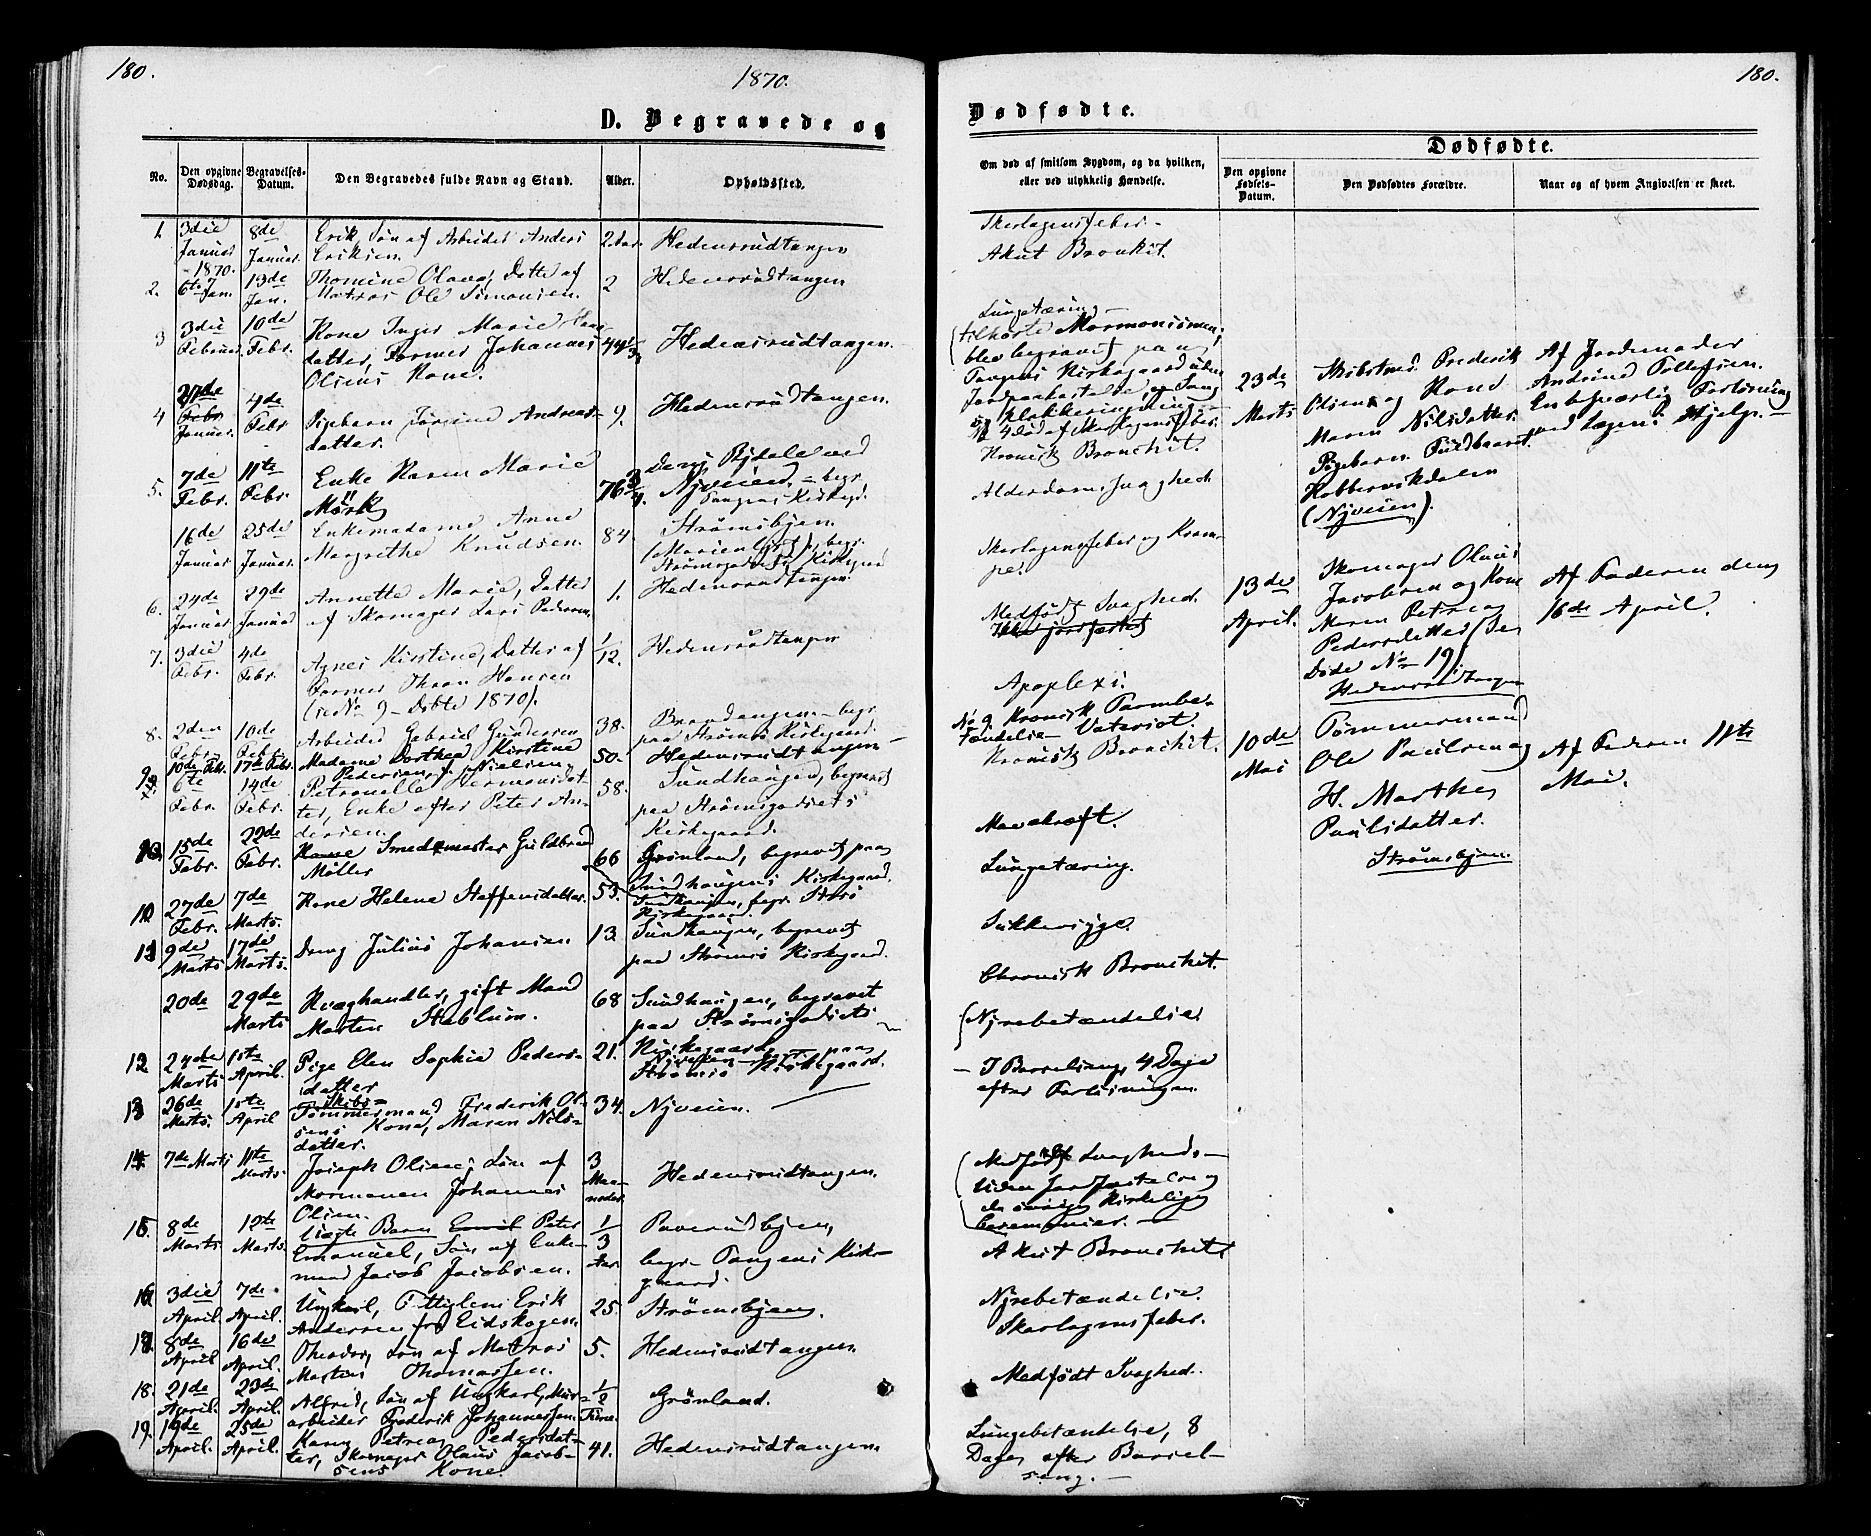 180.
1870.
D. Begravede og
No.
Den opgivne Dødsdag.
Begravelses-Datum.
Den Begravedes fulde Navn og Stand.
Alder.
Opholdssted.
1. 3die Januar 1870. 8de Januar. Erik Søn af Arbeider Anders Eriksen. 2 Aar. Hedensrudtangen
2. 6te Jan. 13de Jan. Thomine Olava, Datter af Matros Ole Simonsen. 2 Hedensrudtangen
3 3die Februar 10de Febr. Kone Inger Marie datter, Former Johannes Olsens Kone. 44 Hedensrudtangen.
4 27de Febr Januar. 4de Febr Pigebarn Jørgine Andreas-datter. 9. Hedensrudtangen.
5. 7de Febr. 11te Febr. Enke Karen Marie Mörk 76 3/4 Nyveien, begr. Tangens Kirkegd.
16de Januar 25de Januar. Enkemadame Anne Margrethe Knudsen. 84. Strømsbyen. begr. Kirkegaard
6. 24de Januar 29de Januar Annette Marie, Datter af Skomager Lars Pedersen. 1. Hedensrudtangen.
7. 3die Febr. 4de Febr. Agnes Kirstine, Datter af Former Hansen (se No 9 - Døbte 1870). 1/12. Hedensrudtangen
8. 2den Febr. 10de Febr. Arbeider Gabriel Gundersen 38. begr. paa Strømsø Kirkegaard.
9. 10de Febr. 17de Febr. Madame Dorthea Kirstine Pedersen, f. Nielsen. 50. Hedensrudtangen
6te Febr. 14de Febr. Petronelle Hermansdatter, Enke efter Peter Andersen. 58. Sundhaugen, begravet paa Strømsgodsets Kirkegaard.
10. 15de Febr. 22de Febr. Smedemester Guldbrand Møller 66 Grønland, begravet paa Sundhaugens Kirkegaard.
27de Febr. 7de Marts. Kone Helene Steffensdatter. 53. Sundhaugen, begr. Kirkegaard.
11 9de Marts 17de Marts. Dreng Julius Johansen 13. Sundhaugen, begravet paa Strømsø Kirkegaard.
20de 29de Marts Kvæghandler, gift Mand Morten Stablum. 68 Sundhaugen, begravet paa Strømsgodsets Kirkegaard
12 24de Marts 1ste April. Pige Elen Sophie Pedersdatter 21. Nyveien begr. paa Strømsø Kirkegaard.
13 26de Marts. 1ste April Skibs-Tømmermand Frederik Olsens Kone, Maren Nilsdatter. 34. Nyveien.
14. 7de Marts 11te Marts. Joseph Olsen, Søn af Mormonen Johannes Olsen. 3 Maaneder. Hedensrudtangen.
15. 8de Marts 12te Marts. Uægte Barn Emil Peter Emanuel, Søn af Enkemand Jacob Jacobsen. 1/3 Aar begr. Tangens Kirkegaard.
16 3die April. 7de April. Ungkarl, Erik Andersen fra Eidskogen. 25. Strømsbyen.
17. 8de April 16de April. Theodor, Søn af Matros Martin Thomassen. 5. Hedensrudtangen.
18. 21de April. 23de April. Alfred, Søn af Ungkarl, Murarbeider Frederik Johannessen. 1/2 Time. Grönland.
19. 19de April. 25de April. Maren Petrea Pedersdatter, Skomager Olaus Jacobsens Kone. 41. Hedensrudtangen.
180.
Dødfødte.
Om død af smitsom Sygdom, og da hvilken, eller ved ulykkelig Hændelse.
Dødfødte.
Den opgivne Fødsels-Datum.
Den Dødfødtes Forældre.
Naar og af hvem Angivelsen er skeet.
Skarlagensfeber.
Akut Bronkit.
Lungetæring
(tilhørte Mormonismen,
blev begravet paa
Tangens Kirkegaard uden
Jordpaakastelse, og Sang
og Klokkeringning
No 4 død af Skarlagensfeber.
Kronisk Bronchit.
Alderdomssvaghed
Skarlagensfeber og Krampe.
Medfødt Svaghed.
Ikke jordfæstet
Apoplexi.
No 9. Kronisk Tarmbetændelse
Kronisk Bronchit.
Mavekræft.
Lungetæring.
Sukkersyge.
Chronisk Bronchit.
(Nyrebetændelse
- I Barselseng, 4 Dage
efter Forløsningen.
(Medfødt Svaghed, -
Uden Jordfæstelse og
de øvrige Kirkelige
Ceremonier. -
Akut Bronchit.
Nyrebetændelse.
Skarlagensfeber.
Medfödt Svaghed.
Lungebetændelse, 8
Dage efter Barselseng. -
23de Marts Skibstmd. Frederik Olsen og Kone Maren Nilsdatter. Pigebarn. Fuldbaaret. Kobbervikdalen (Nyveien). Af Jordemoder Andrine Tollefsen. En besværlig Forløsning ved Lægens Hjelp. -
13de April. Skomager Olaus Jacobsen og Kone Maren Petrea Pedersdatter (Se Døde No 19) Hedensrudtangen Af Faderen den 16de April.
10de Mai Tømmermand Ole Paulsen og H. Marthe Paulsdatter. Strømsbyen. Af Faderen 11te Mai.